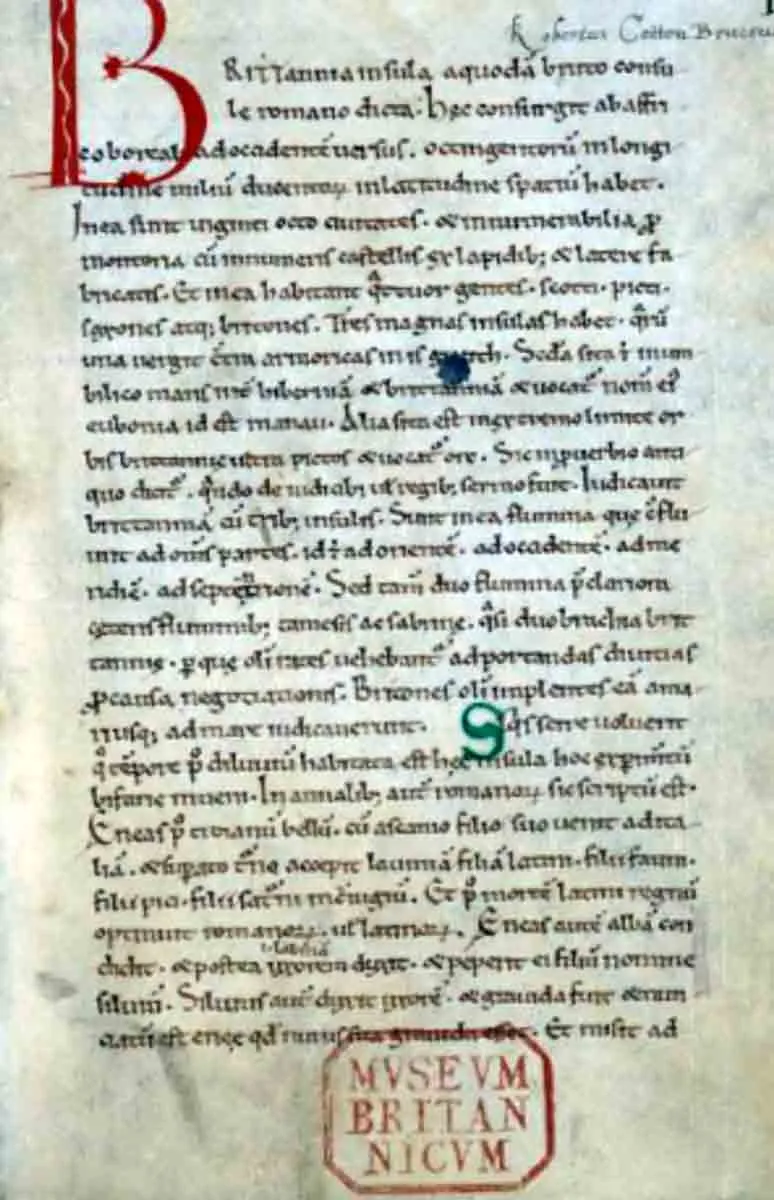 Robertus Cotton Bruceus
BRITTannia insula a quodā brito consu
le romano dicta. hęc consurgit ab affri
co boreali ad occidentē uersus. octingentorū in longi
tudine miliū ducentoꝝ in latitudine spatiū habet.
In ea sunt uiginti octo ciuitates. & innumerabilia ꝓ
montoria cū innumeris castellis ex lapidib; & latere fa
bricatis. Et in ea habitant quattuor gentes. scotti. picti.
saxones atq; britones. Tres magnas insulas habet. quarū
una uergit contra armoricas
Secunda sita ē in um
bilico maris int̄ hiberniā & brittanniā & uocat̄ nom̄ ei᷒
eubonia id est manau. Alia sita est in extremo limite or
bis brittannie ultra pictos & uocat̄ orc. Sic in ꝓuerbio anti
quo dicit̄. quando de iudicib; ul̄ regib; sermo fuit. Iudicauit
brittanniā cū trib; insulis. Sunt in ea flumina que
unt ad om̄s partes. id ē ad orientē. ad occidentē. ad me
ridiē. ad septētrionē. Sed tam̄ duo flumina p̄clariora
ceteris fluminib; tamesis ac sabrine. quasi duo brachia brit
tannię. ꝑ que oli rates uehebant̄ ad portandas diuitias
ꝓ causa negociationis. Britones oli implentes eā a ma
ri usq; ad mare iudicauerunt. Siquis scire uoluerit
quo tēpore p̄ diluuiū habitata est hęc insula hoc exꝑimentū
bifarie inueni. In annalib; aut̄ romanoꝝ sic scriptū est.
Eneas p̄ troianū bellū. cū ascanio filio suo uenit ad ita
liā. & suꝑato t̄no accepit lauiniā filiā latini. filii fauni.
filii pici. filii Et p̄ mortē latini regnū
optinuit romanoꝝ. ul̄ latinoꝝ. Eneas autē albā con
didit. & postea uxorem duxit. & peperit ei filiū nomine
siluiū. Siluius aut̄ duxit uxorē. & grauida fuit & nun
ciatū est enęę qd̄ nurus sua grauida esset. Et misit ad
MVSEVM
BRITAN
NICVM